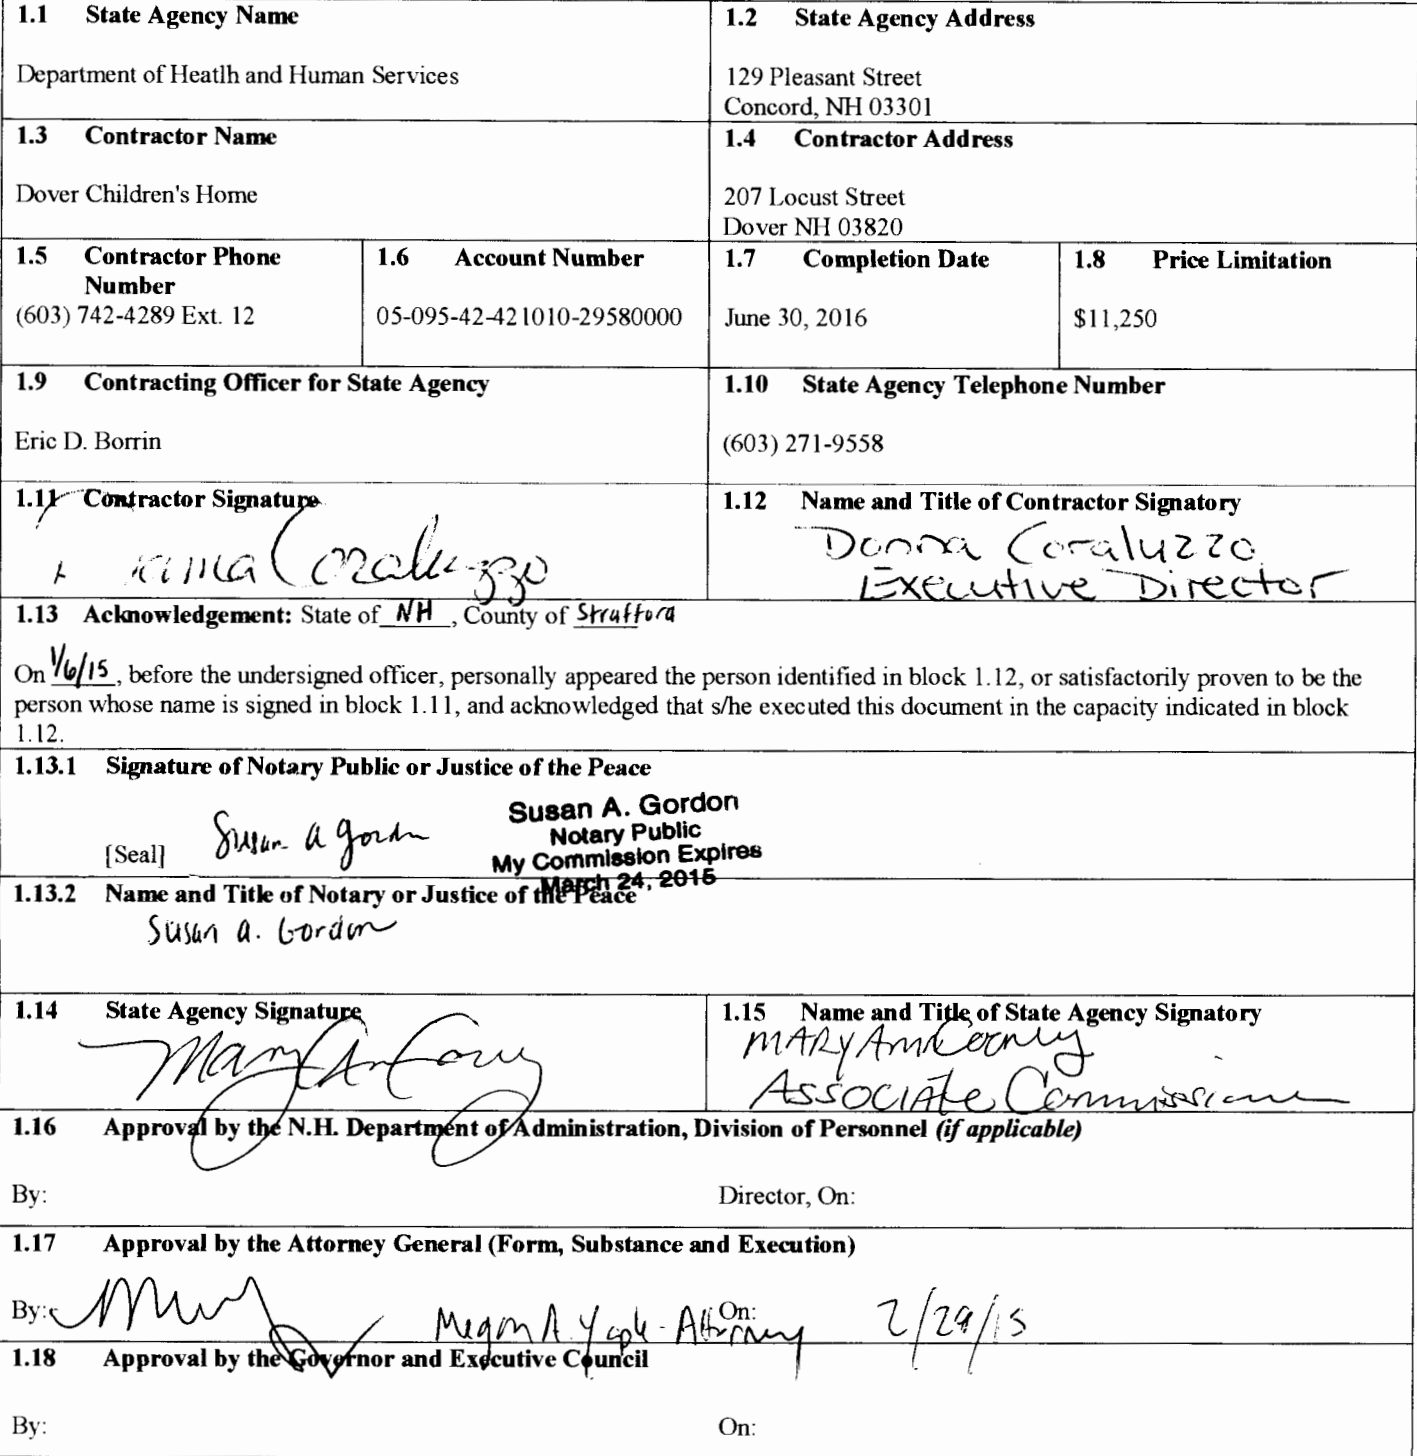 1.1 State Agency Name
Department of Heatlh and Human Services
1.2 State Agency Address
129 Pleasant Street
Concord, NH 03301
1.3 Contractor Name
Dover Children's Home
1.4 Contractor Address
207 Locust Street
Dover NH 03820
1.5 Contractor Phone
Number
(603) 742-4289 Ext. 12
1.6 Account Number
05-095-42-421010-29580000
1.7 Completion Date
June 30, 2016
1.8 Price Limitation
$11,250
1.9 Contracting Officer for State Agency
Eric D. Borrin
1.10 State Agency Telephone Number
(603) 271-9558
1.11 Contractor Signature
Coraluzzo
1.12 Name and Title of Contractor Signatory
Donna Coraluzzo
Executive Director
1.13 Acknowledgement: State of NH, County of Strafford
On 1/6/15, before the undersigned officer, personally appeared the person identified in block 1.12, or satisfactorily proven to be the
person whose name is signed in block 1.11, and acknowledged that s/he executed this document in the capacity indicated in block
1.12.
1.13.1 Signature of Notary Public or Justice of the Peace
[Seal] Susan A Gordon
Susan A. Gordon
Notary Public
My Commission Expires
March 24, 2015
1.13.2 Name and Title of Notary or Justice of the Peace
Susan A. Gordon
1.14 State Agency Signature
1.15 Name and Title of State Agency Signatory
Mary Ann Cooney
Associate Commissioner
1.16 Approval by the N.H. Department of Administration, Division of Personnel (if applicable)
By: Director, On:
1.17 Approval by the Attorney General (Form, Substance and Execution)
By: Megan A. - Attorney On:
1.18 Approval by the Governor and Executive Council
By: On: